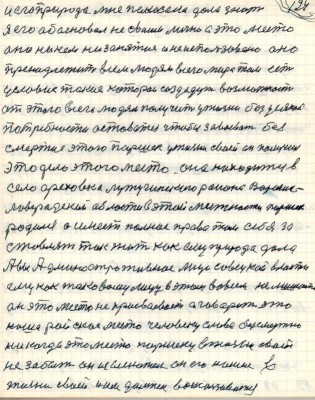 124
и сего природа мне показала дала знать
я его обосновал не своими мною а это место
оно никем не занятое и не использовано оно
принадлежит всем людям всего мира там есть
условие такие которая создадут возможность
от этого всего люди получат жизни без всякой
потребности оставатся чтобы завоевать без
смертие этого паршек жизни своей он получил
это дело этого место. она находится в
село ореховка лутугинского района Вороши-
ловградской области в этой местности паршек
родился и имеет полное право там себя за
ставлять так жить как ему природа дала
А вы Административные лица советской власти
ему как таковому лицу в этом совсем не мешайте
он это место не присваивает а говорит это
наша райское место человеку слава бессмертно
никогда это место паршеку в жизни своей
не забыть он цепеняется он его нашел
жизни своей и им должен воспользоватся